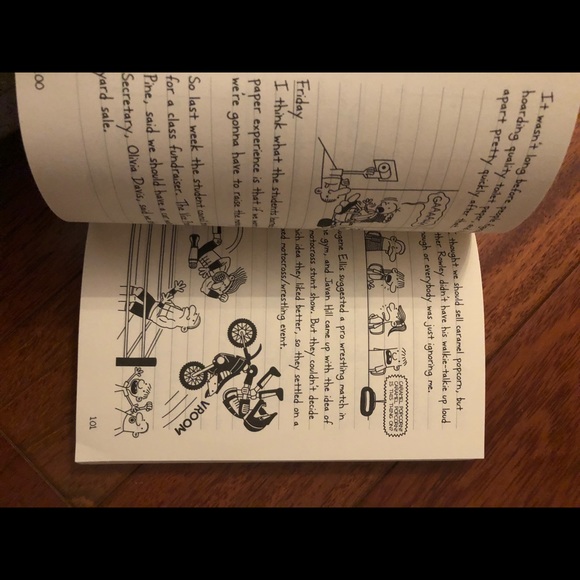 It wasn't long before
hoarding quality toilet
apart pretty quickly after
GAAA!
Friday
I think what the students
paper experience is that if we
we're gonna have to raise the
So last week the student
for a class fundraiser. The Vice
Pine, said we should have a
Secretary, Olivia Davis, said
yard sale.
00
thought we should sell caramel popcorn, but
ther Rowley didn't have his walkie-talkie up loud
ough or everybody was just ignoring me.
CARAMEL POPCORN!
CARAMEL POPCORN!
IS THIS THING ON?
gene Ellis suggested a pro wrestling match in
e gym, and Javan Hill came up with the idea of
motocross stunt show. But they couldn't decide
ich idea they liked better, so they settled on a
ed motocross/wrestling event.
VROOM
101